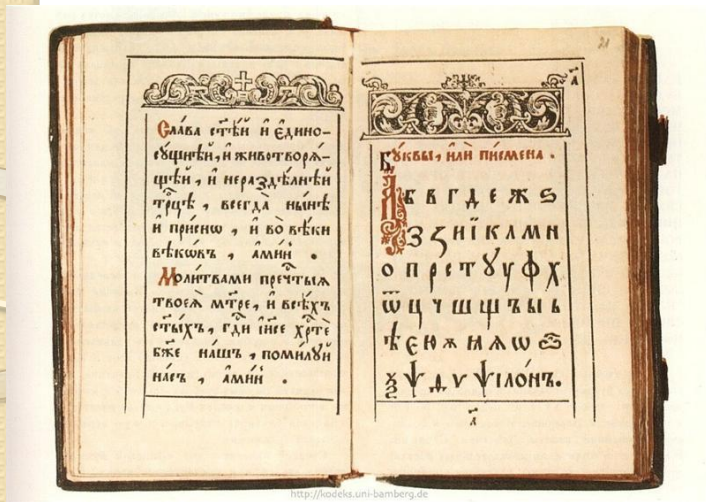 Сла́ва ст҃ѣ́й и҆ є҆дино-
сꙋ́щнѣй, и҆ животворѧ́-
щѣй, и҆ нераздѣ́лнѣй
трⷪ҇цѣ, всегда̀ ны́нѣ
и҆ при́снѡ, и҆ во вѣ́ки
вѣкѡ́въ, а҆ми́нь.
Моли́твами пречⷭ҇тыѧ
твоеѧ̀ мт҃ре, и҆ всѣ́хъ
ст҃ы́хъ, гдⷭ҇и і҆и҃се хрⷭ҇тѐ
бж҃е на́шъ, поми́лꙋй
на́съ, а҆ми́нь.
21
а҃
Бꙋ́квы, и҆лѝ писмена̀.
А Б В Г Д Е Ж Ѕ
З Ꙁ И Ї К Л М Н
О П Р С Т Ꙋ У Ф Х
Ѿ Ц Ч Ш Щ Ъ Ы Ь
Ѣ Є Ю Ѫ Ꙗ Ѧ Ѡ
Ѯ Ѱ Ѵ Ѱїло́нъ.
http://kodeks.uni-bamberg.de